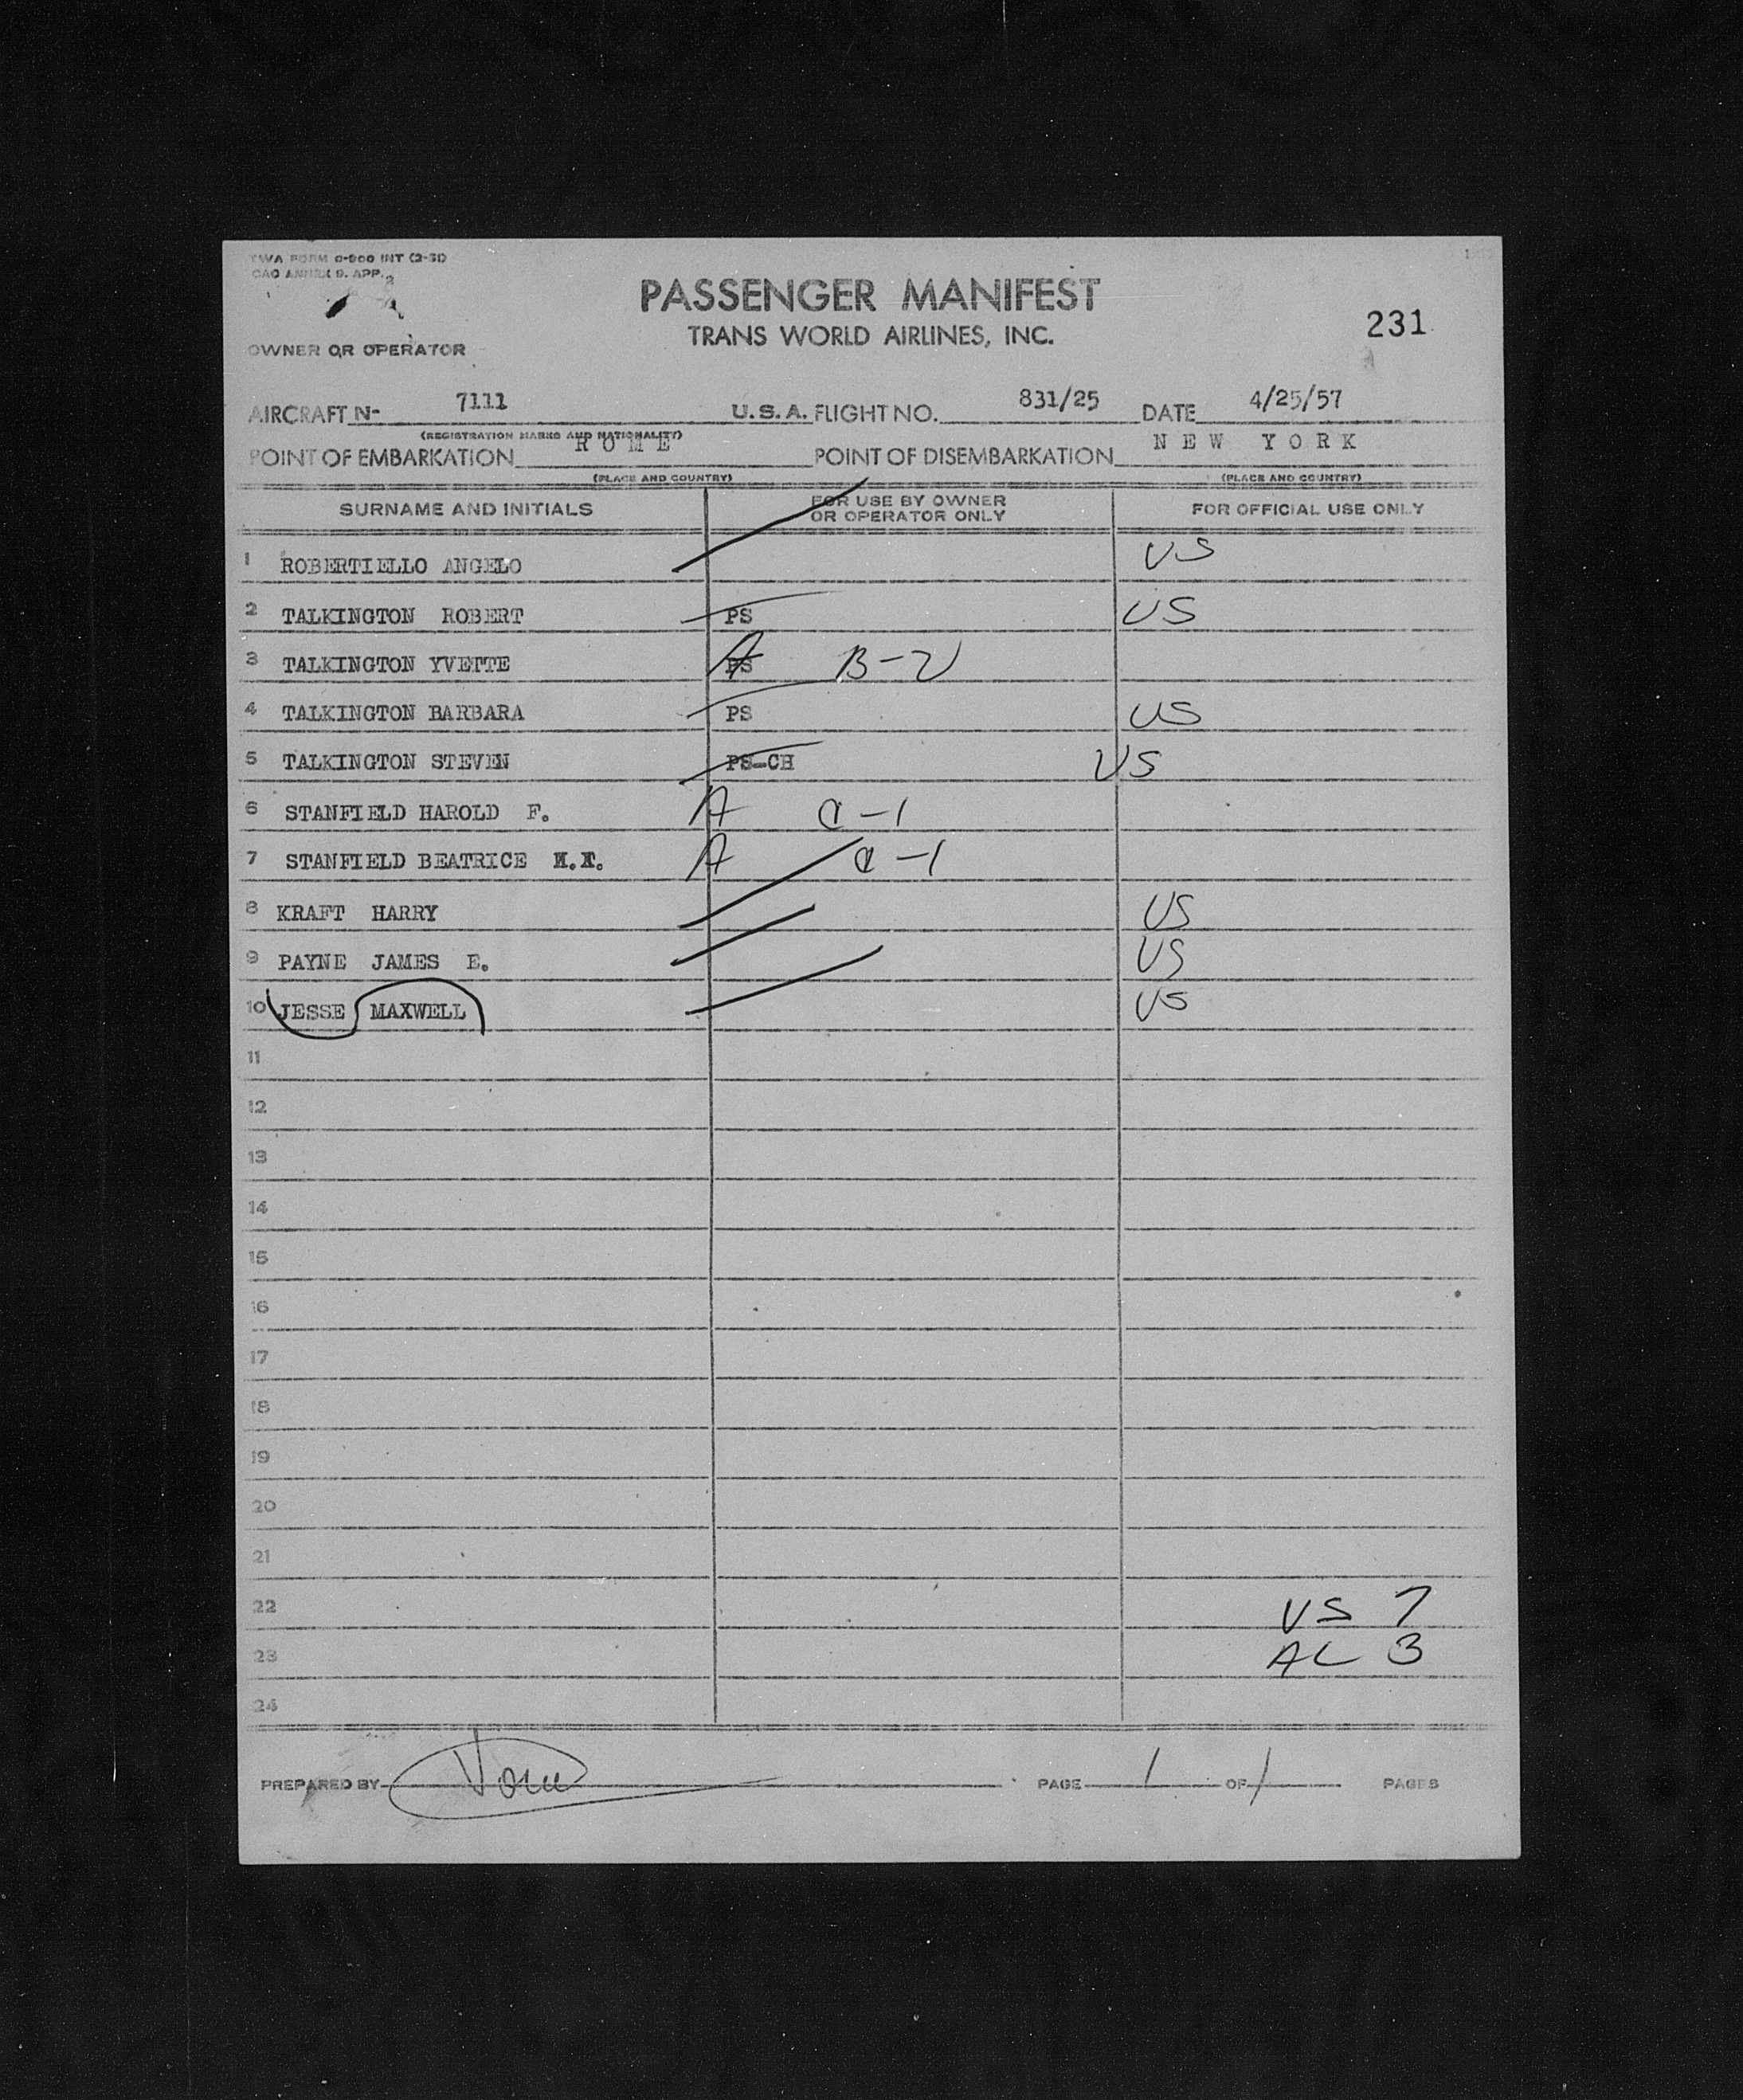 TWA FORM 0-800 INT (2-51)
CAO ANNEX 9. APP. 2
PASSENGER MANIFEST
TRANS WORLD AIRLINES, INC.
231
OWNER OR OPERATOR
AIRCRAFT N- 7111 U.S.A. FLIGHT NO. 831/25 DATE 4/25/57
(REGISTRATION MARKS AND NATIONALITY)
POINT OF EMBARKATION ROME POINT OF DISEMBARKATION NEW YORK
(PLACE AND COUNTRY) (PLACE AND COUNTRY)
SURNAME AND INITIALS FOR USE BY OWNER OR OPERATOR ONLY FOR OFFICIAL USE ONLY
1 ROBERTIELLO ANGELO US
2 TALKINGTON ROBERT PS US
3 TALKINGTON YVETTE PS A B-2
4 TALKINGTON BARBARA PS US
5 TALKINGTON STEVEN PS-CH US
6 STANFIELD HAROLD F. A C-1
7 STANFIELD BEATRICE A C-1
8 KRAFT HARRY US
9 PAYNE JAMES E. US
10 JESSE MAXWELL US
11
12
13
14
15
16
17
18
19
20
21
22 US 7
23 AL 3
24
PREPARED BY PAGE 1 OF 1 PAGES